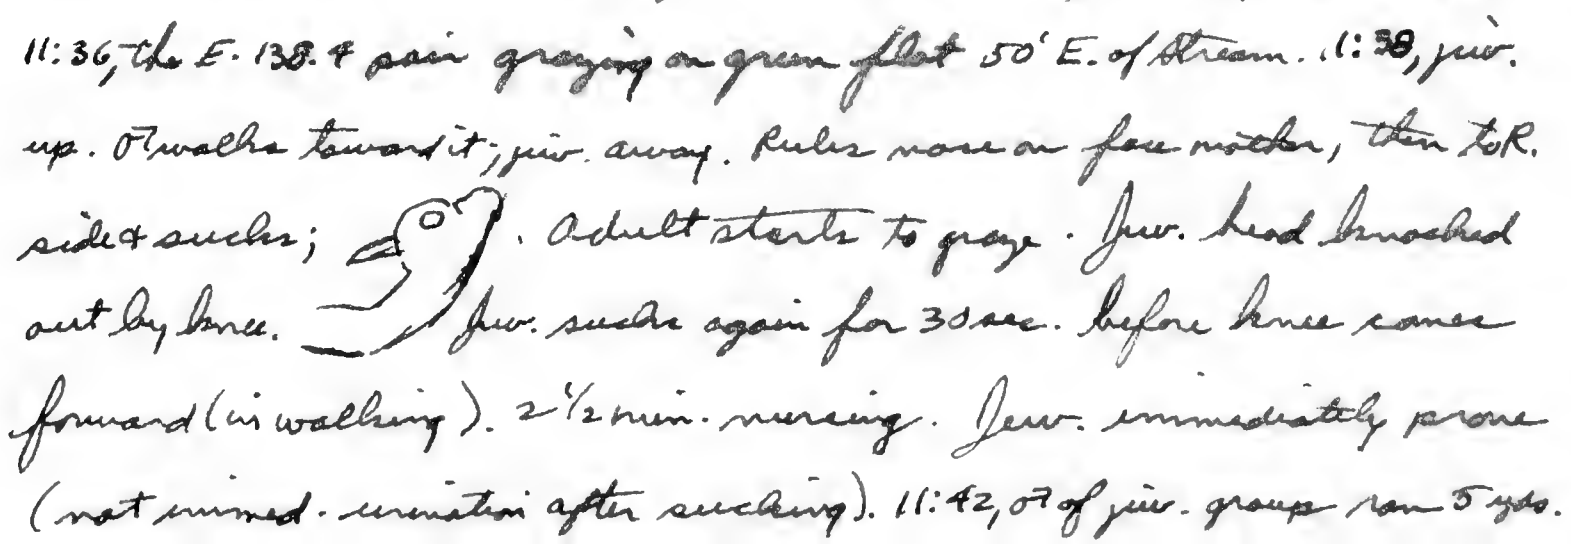 11:36, the E. 138.4 pair grazing on green flat 50' E. of stream. 11:38, juv.
up. ♂ walks toward it; juv. away. Rubs nose on face mother, then to R.
side & sucks; . Adult starts to graze. Juv. head knocked
out by knee. Juv. sucks again for 30 sec. before knee comes
forward (in walking). 2 1/2 min. nursing. Juv. immediately prone
(not immed. urination after sucking). 11:42, ♂ of juv. group ran 5 yds.